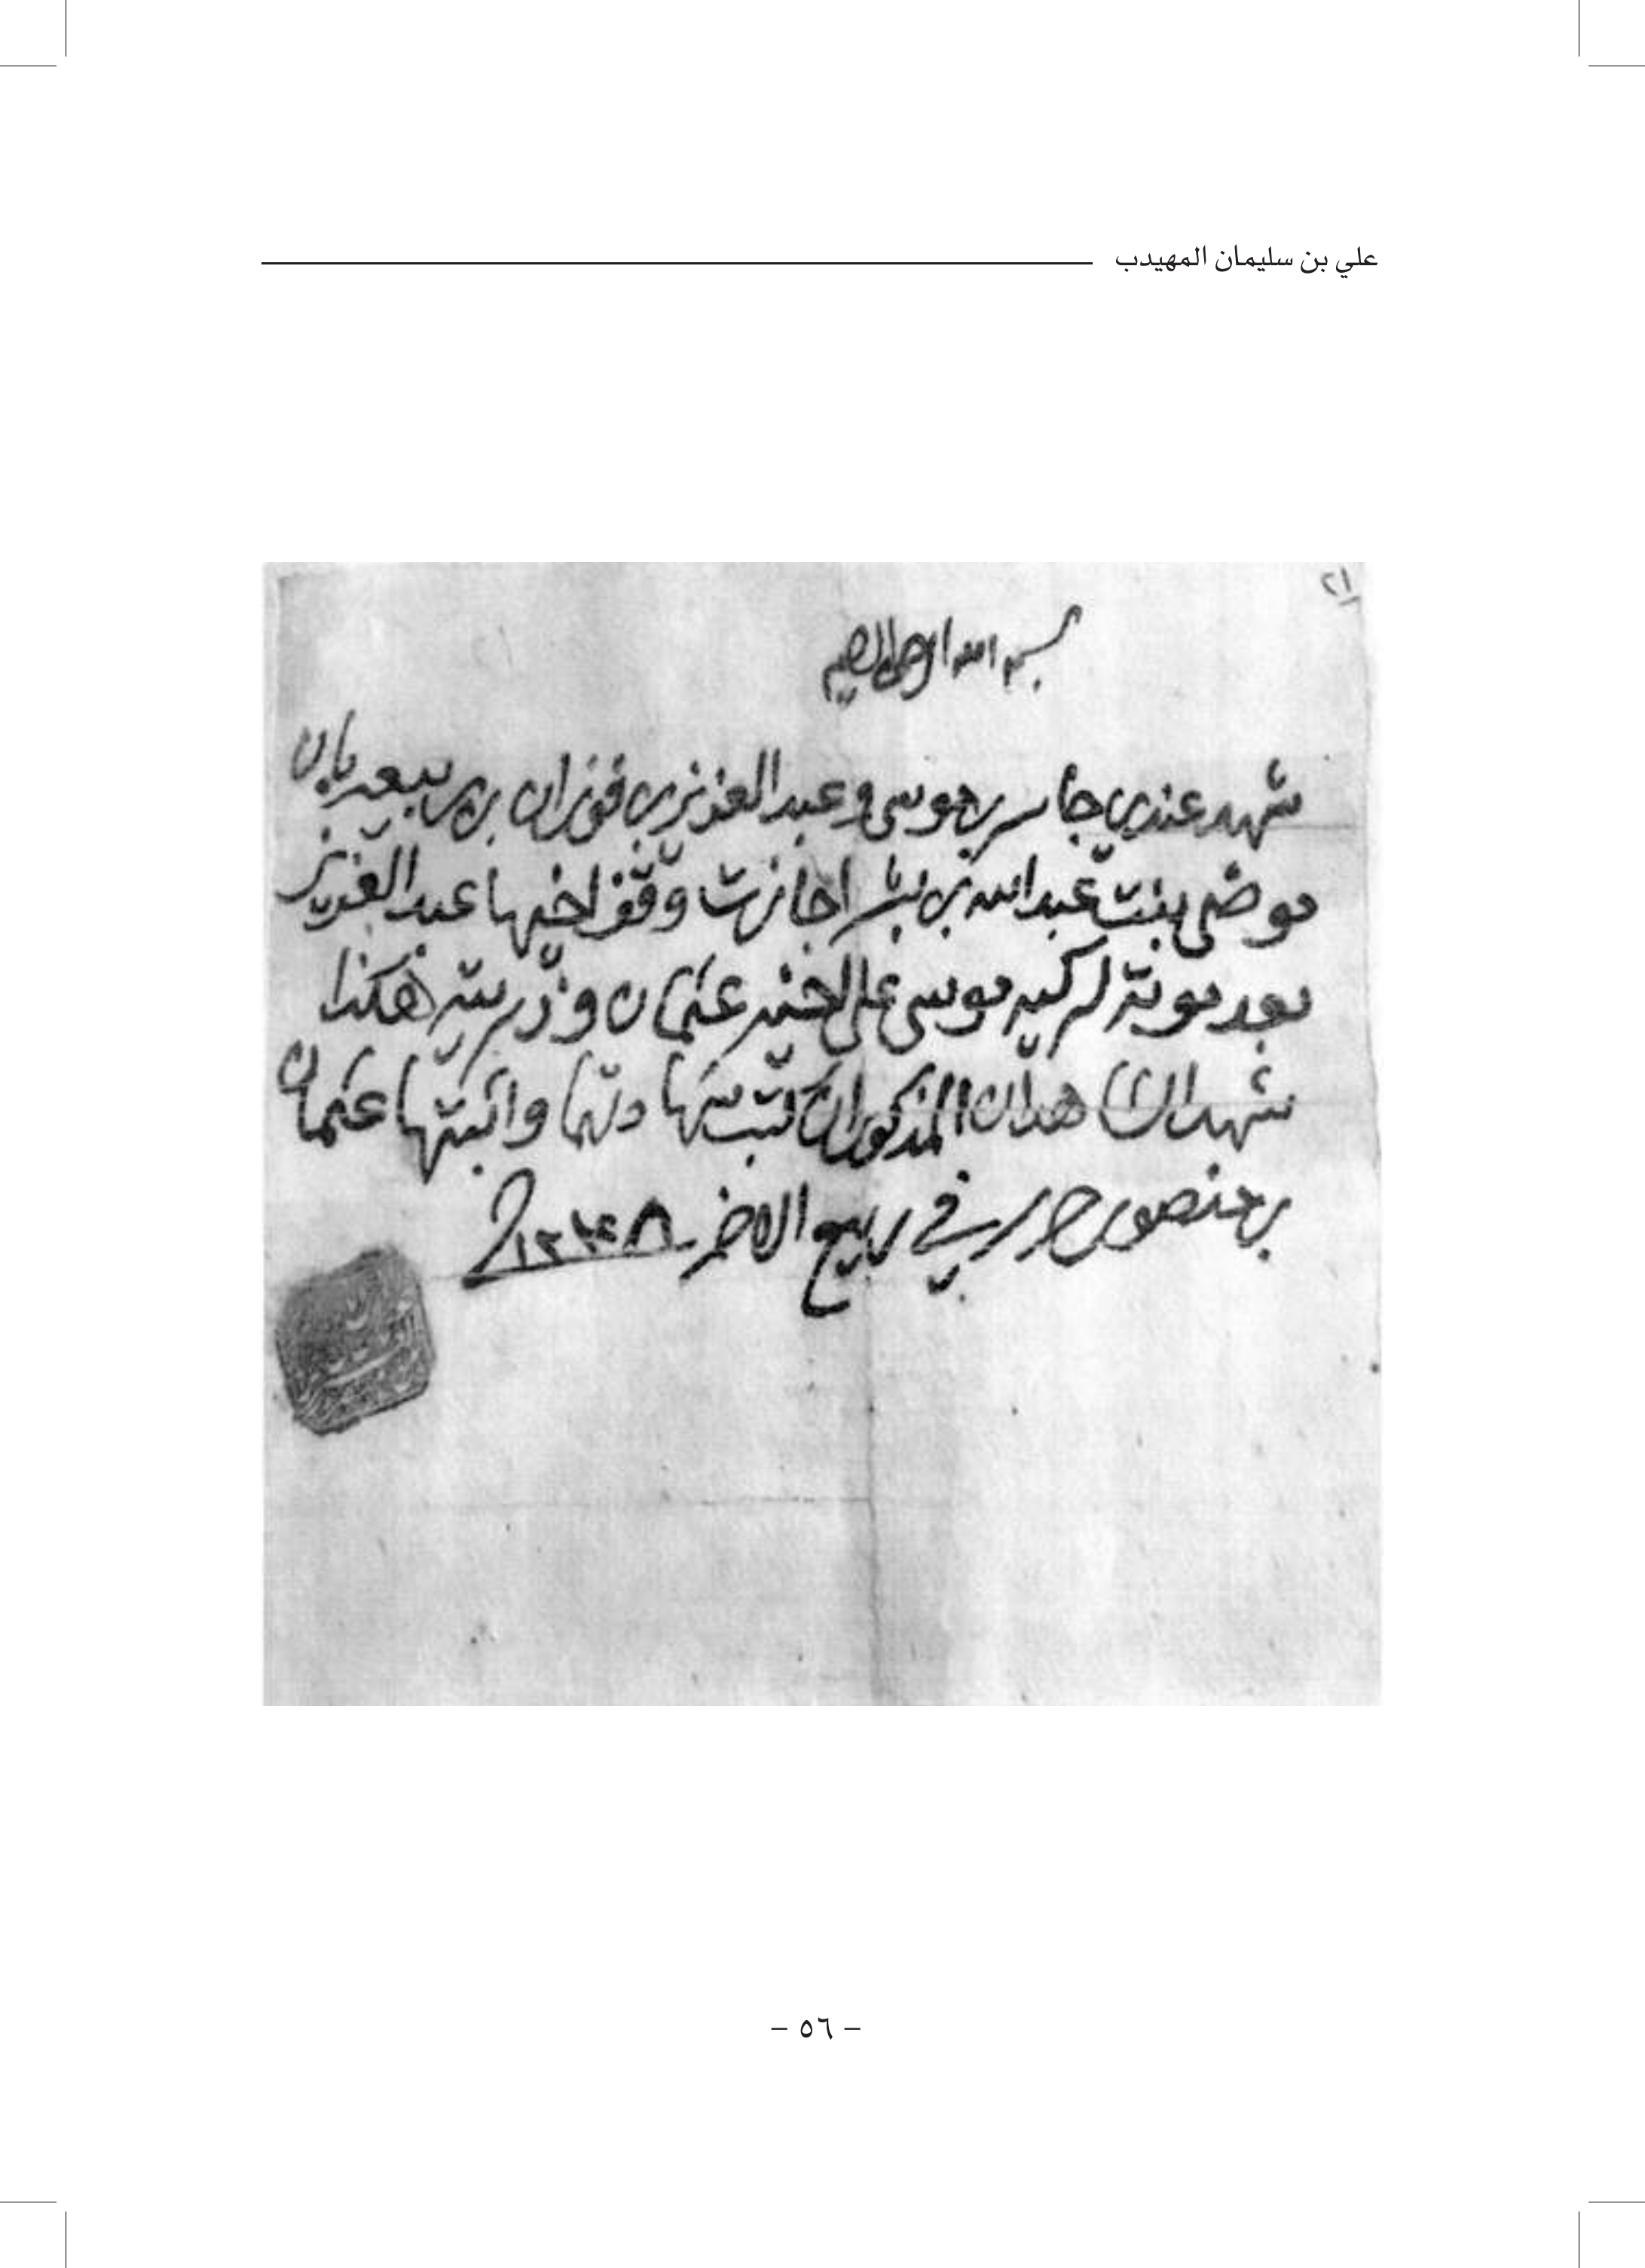 علي بن سليمان المهيدب
٢١
بسم الله الرحمن الرحيم
شهد عندي جاسر بن موسى وعبد العزيز بن فوزان بن ربيعه بان
موضي بنت عبد الله بن بشر اجازت وقف اخيها عبد العزيز
بعد موته لركيه موسى على اخيه عثمان وذريته هكذا
شهدا هذان المذكوران كتب شهادتهما واثبتها عثمان
بن منصور حرر في ربيع الاخر ١٢٣٨
– ٥٦ –